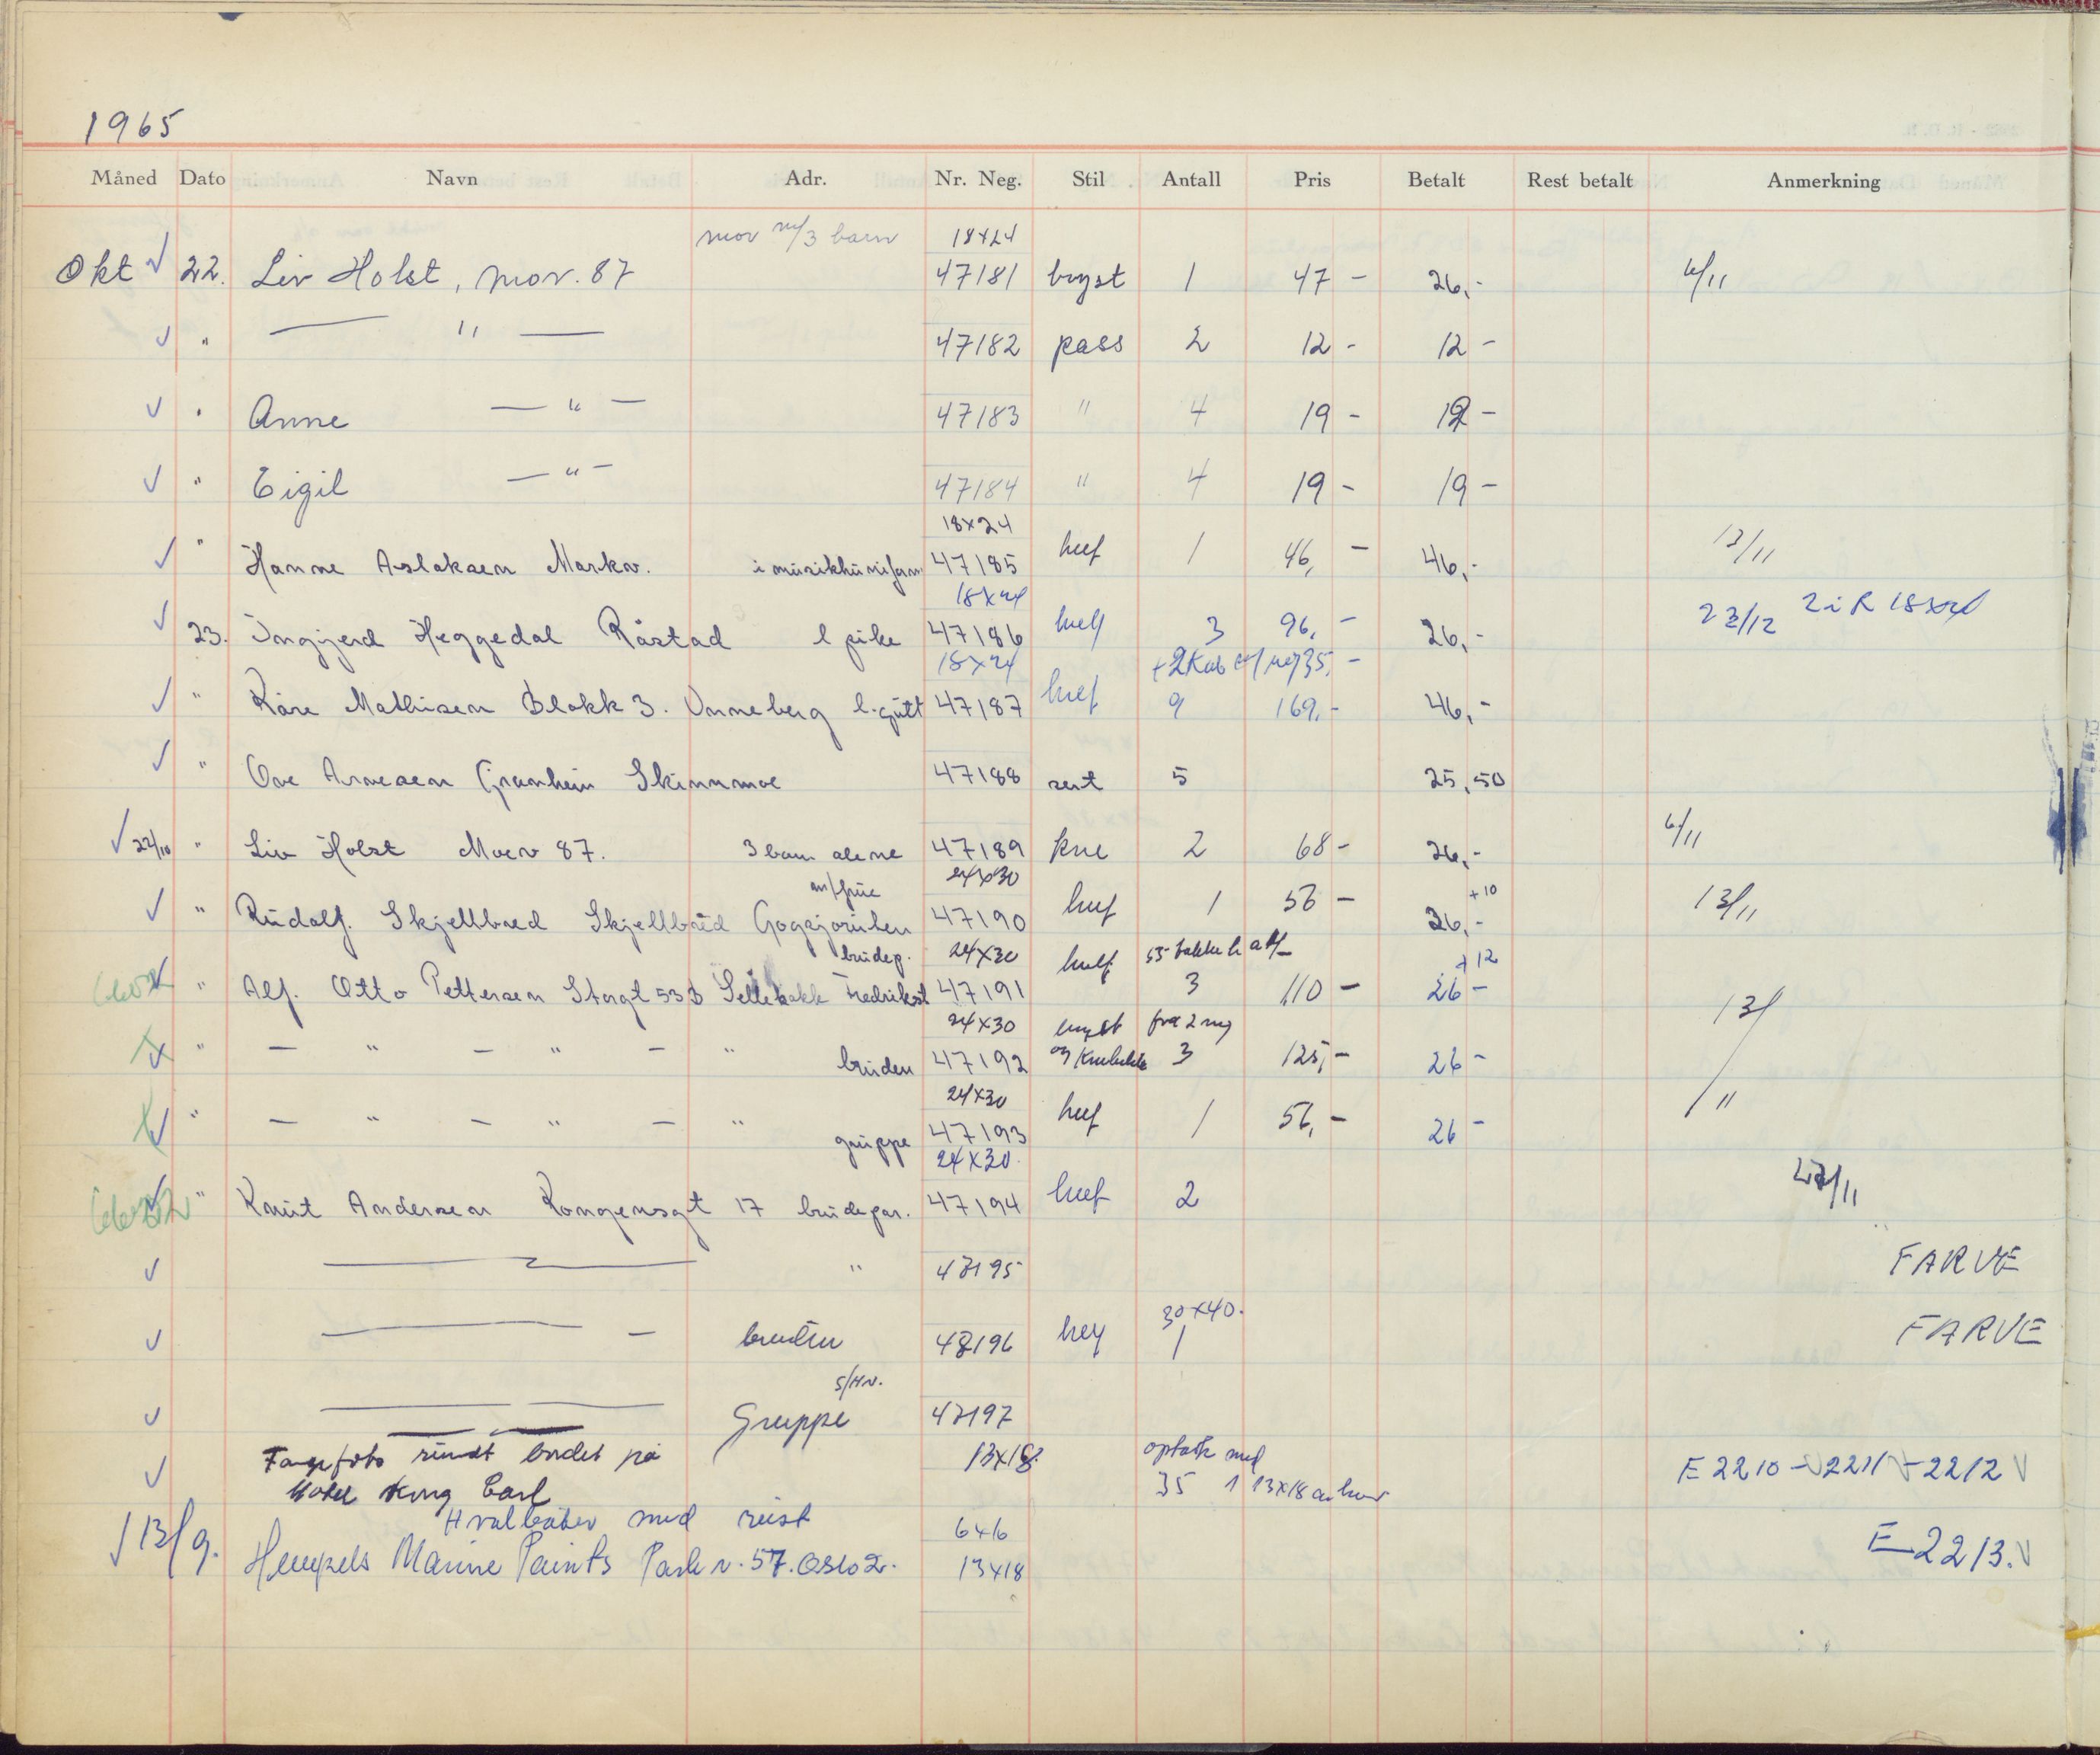 1965
Måned Dato Navn Adr. Nr. Neg. Stil Antall Pris Betalt Rest betalt Anmerkning
mor m/3 barn 18x24
Okt √ 22. Liv Holst, mor. 87 47181 bryst 1 47 - 26,- 6/11
√ " — " — 47182 pass 2 12 - 12 -
√ " Anne — " — 47183 " 4 19 - 19 -
√ " Eigil — " — 47184 " 4 19 - 19 -
18x24
√ " Hanne Aslaksen Markv. i musikkuniform 47185 1 46, - 46,- 13/11
18x24
√ 23. Ingjerd Heggedal Råstad l pike 47186 3 96, - 26,- 23/12 2 i R 18x24
18x24 35, -
√ " Kåre Mathisen Blokk 3. Ünneberg l. gutt 47187 9 169,- 46,-
√ " Ove Arnesen Granheim Skinnmoe 47188 5 25,50
√ 22/10 " Liv Holst Morv 87. 3 barn alene 47189 kne 2 68 - 26,- 6/11
m/frue 24x30
√ " Rudolf. Skjellbred Skjellbred 47190 1 56 - 26,- +10 13/11
brudep. 24x30 +12
√ " Alf. Otto Pettersen Storgt 53 b Sellebakk Fredrikst 47191 3 110 - 26 - 13/
24x30 bryst fra 2 neg
√ " — " — " — " bruden 47192 og 3 125,- 26 -
24x30
√ " — " — " — " gruppe 47193 1 56, - 26 - / 11
24x30.
√ " Knut Andersen Kongensgt 17 brudepar. 47194 2 /11
√ — " 47195 FARVE
30x40.
√ — — bruden 47196 1 FARVE
S/Hv.
√ — — Gruppe 47197
√ Fargefoto rundt bordet på 13x18. opptatt med
Hotel King Carl 35 1 13x18 E 2210 - √ 2211 √ - 2212 √
Hvalbåter med rust 6x6
√ 13/9. Hempels Marine Paints Parkv. 57. Oslo 2. 13x18 E-2213. √